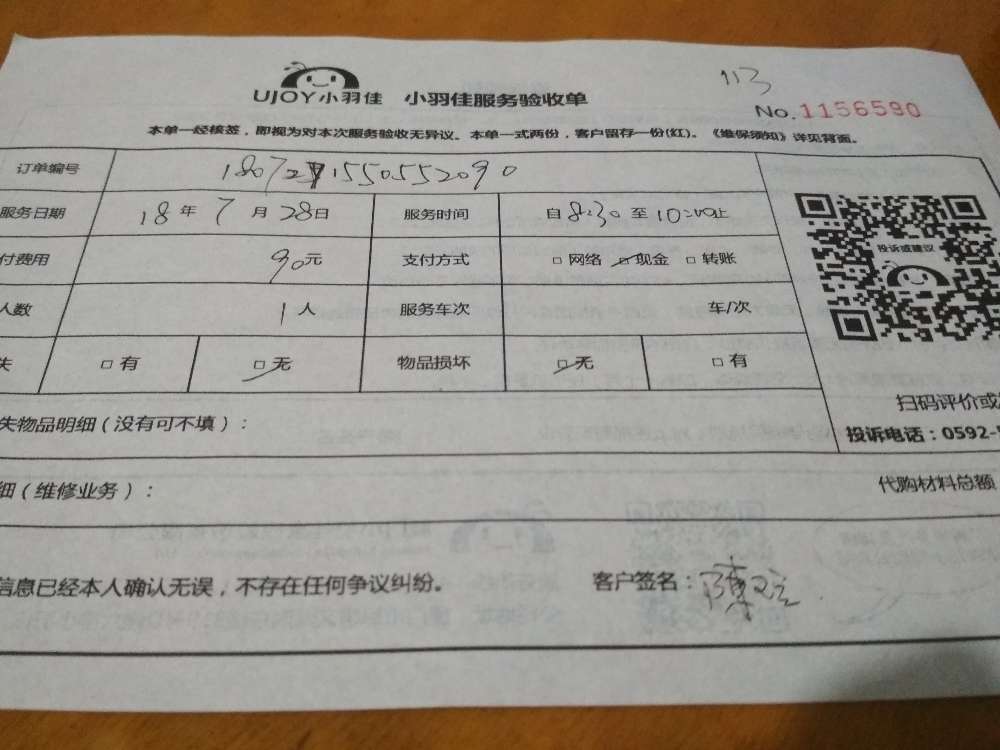 113
UJOY小羽佳 小羽佳服务验收单
No.1156590
本单一经核签，即视为对本次服务验收无异议。本单一式两份，客户留存一份(红)。《维保须知》详见背面。
订单编号
服务日期 18年7月28日 服务时间 自8:30至10:00止
付费用 90元 支付方式 □网络 □现金 □转账
投诉或建议
人数 1人 服务车次 车/次
失 □有 □无 物品损坏 □无 □有
扫码评价或
失物品明细（没有可不填）：
投诉电话：0592-
细（维修业务）： 代购材料总额
信息已经本人确认无误，不存在任何争议纠纷。 客户签名：